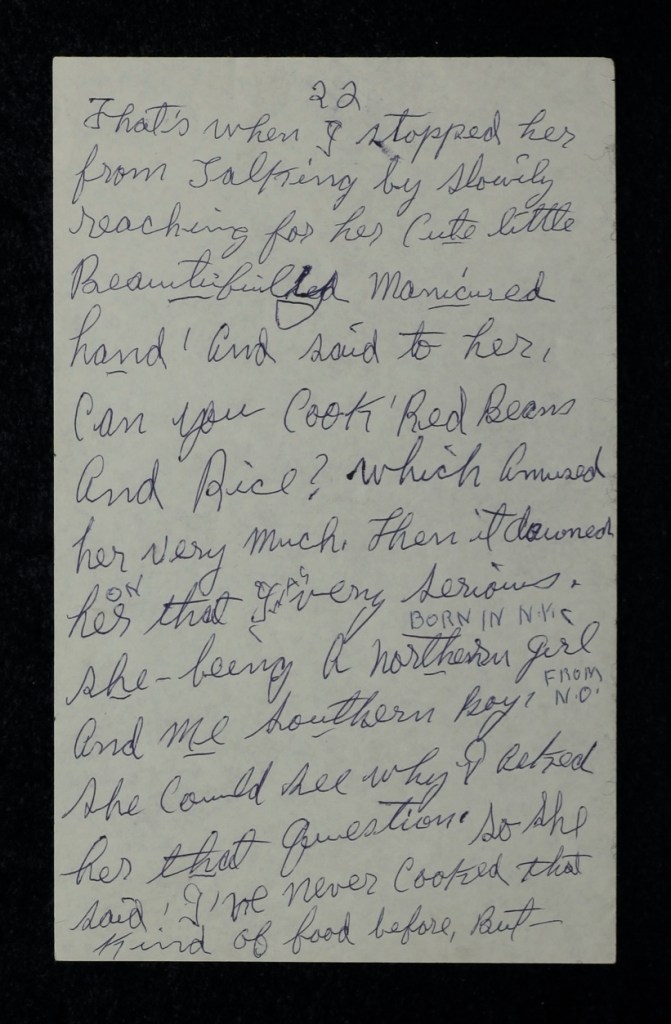 22
That's when I stopped her
from Talking by slowily
reaching for her Cute little
Beautifully Manicured
hand' And said to her,
Can you Cook 'Red Beans
And Rice? which Amused
her very much. Then it dawned
ON
her that I WAS very serious.
BORN IN N.Y.C
she-being A northern girl
FROM
N.O.
And Me Southern Boy,
she Could see why I asked
her that Question. So she
said' I've never Cooked that
kind of food before, But-